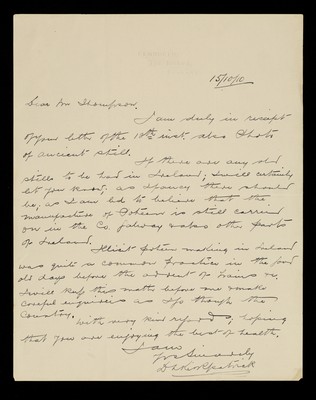 15/10/10
Dear Mr Thompson,
I am duly in receipt
of your letter of the 10th inst. also Photo
of ancient still.
If there are any old
stills to be had in Ireland, I will certainly
let you know, as I fancy there should
be, as I am led to believe that the
manufacture of Poteen is still carried
on in the Co. Galway & also other parts
of Ireland.
Illicit Poteen making in Ireland
was quite a common practice in the good
old days before the advent of trains &c,
I will keep this matter before me & make
careful enquiries as I go through the
Country.
With very kind regards, hoping
that you are enjoying the best of health.
I am
Yrs Sincerely
Kirkpatrick